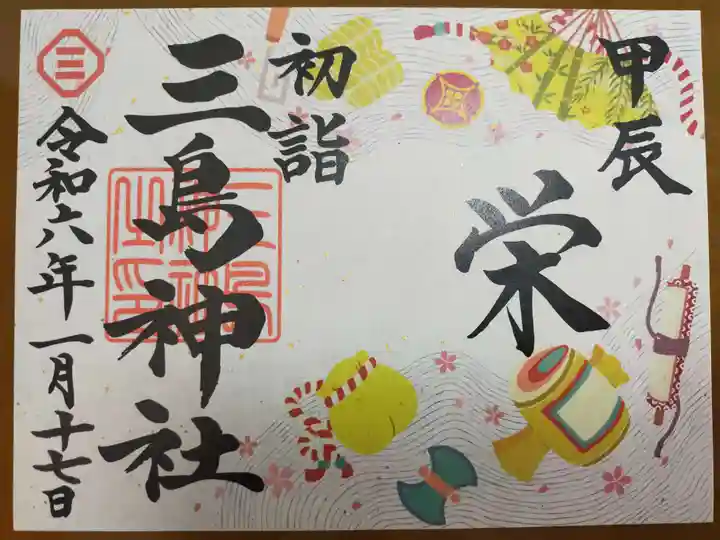 甲辰
栄
初詣
三島神社
三島神社之印
三
令和六年一月十七日